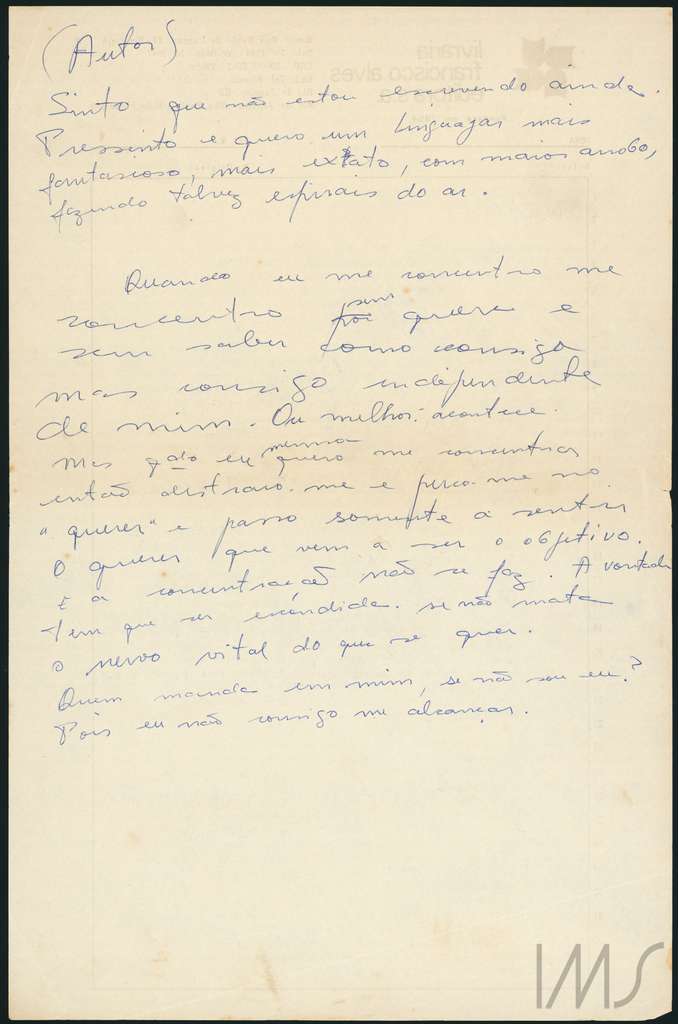 (Autor)
Sinto que não estou escrevendo ainda.
Pressinto e quero um linguajar mais
fantasioso, mais exato, com maior arroubo,
fazendo talvez espirais do ar.
Quando eu me concentro me
concentro sem querer e
sem saber como consigo
mas consigo independente
de mim. Ou melhor: acontece.
Mas qdo eu mesma quero me concentrar
então distraio-me e perco-me no
"querer" e passo somente a sentir
o querer que vem a ser o objetivo.
E a concentração não se faz. A vontade
tem que ser escondida. se não mata
o nervo vital do que se quer.
Quem manda em mim, se não sou eu?
Pois eu não consigo me alcançar.
livraria
francisco alves
IMS